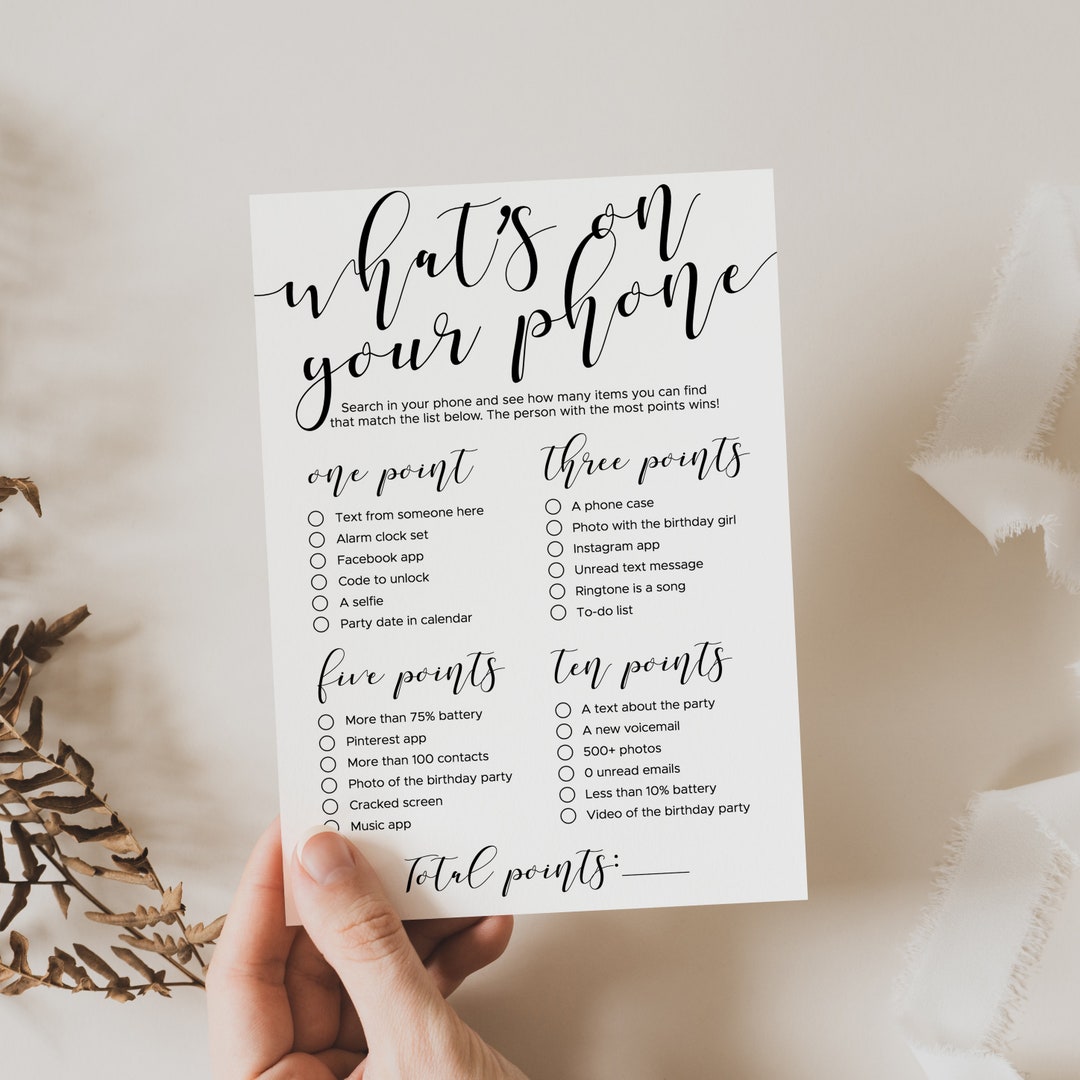 what's on
your phone
Search in your phone and see how many items you can find
that match the list below. The person with the most points wins!
one point
Text from someone here
Alarm clock set
Facebook app
Code to unlock
A selfie
Party date in calendar
three points
A phone case
Photo with the birthday girl
Instagram app
Unread text message
Ringtone is a song
To-do list
five points
More than 75% battery
Pinterest app
More than 100 contacts
Photo of the birthday party
Cracked screen
Music app
ten points
A text about the party
A new voicemail
500+ photos
0 unread emails
Less than 10% battery
Video of the birthday party
Total points:____